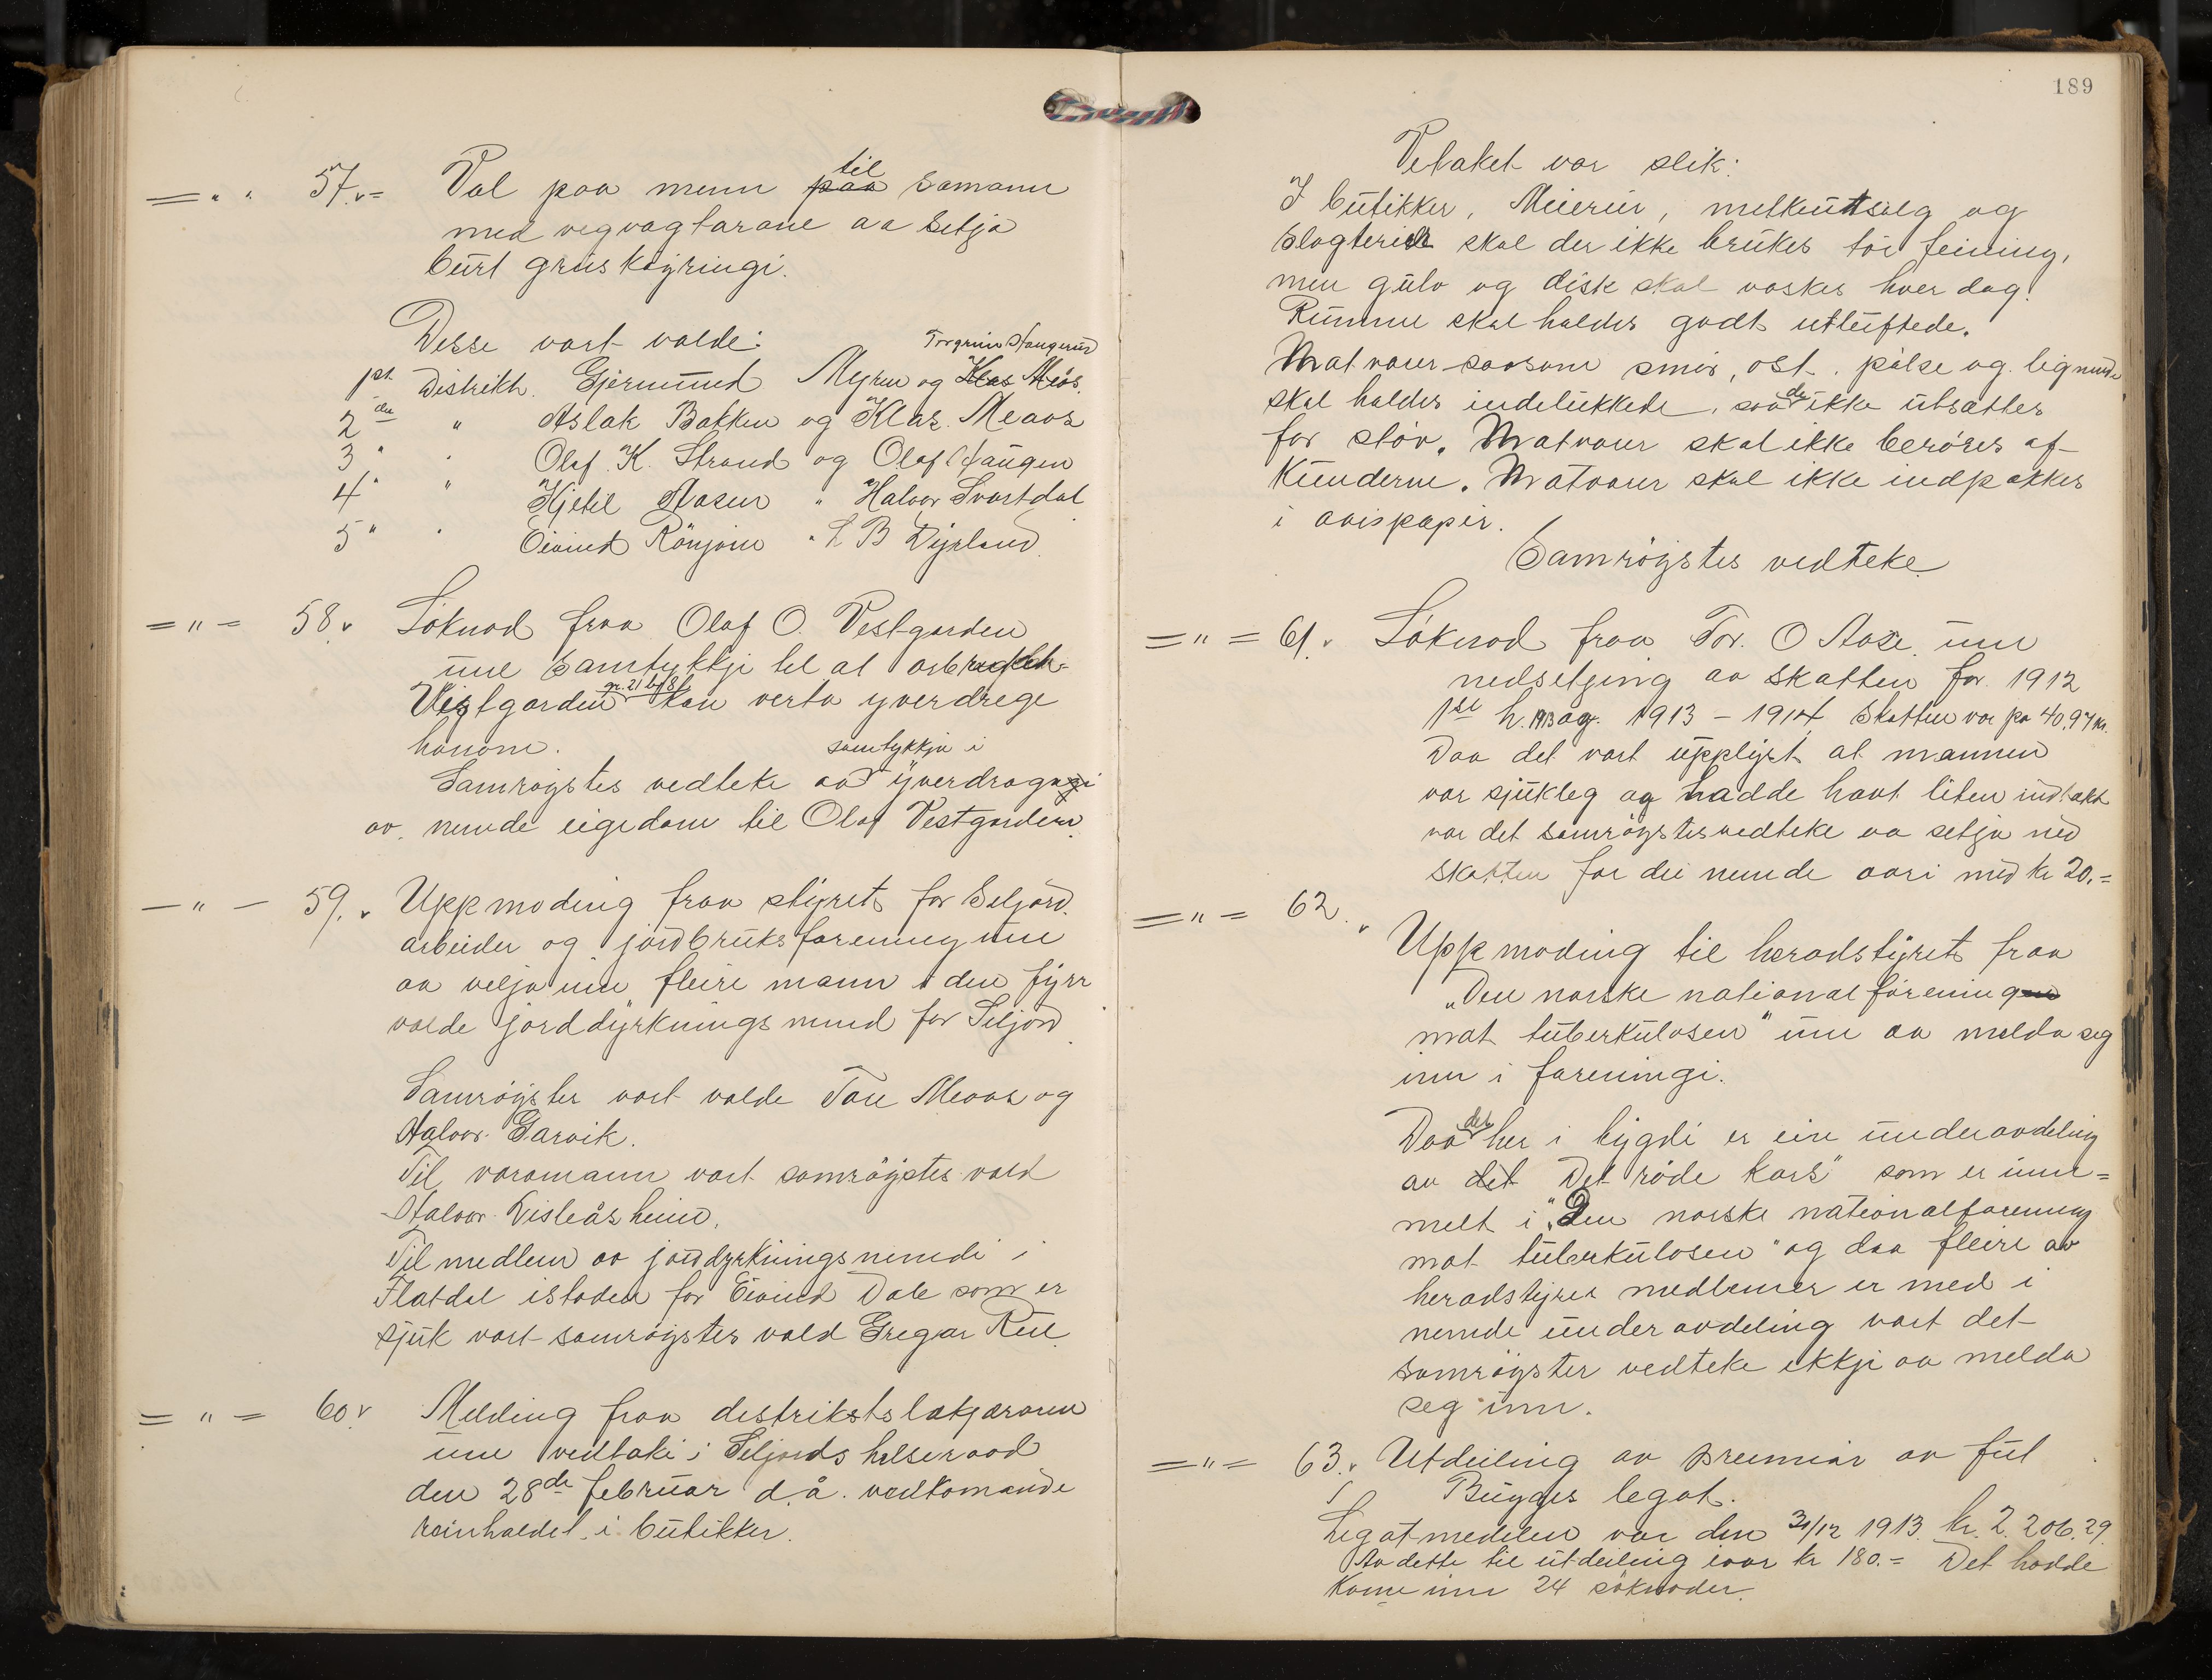 57. Val paa menn til paa samann
med vegvagtarane aa setja
burt gruskøyringi.
Desse vart valde:
Torgrim Haugerud
1st Distrikt. Gjermund Myren og Klas Meås
2den " Aslak Bakken og Klas Meaas
3 " " Olaf K. Strand og Olaf Haugen
4 " " Kjetil Aasen " Halvor Svartdal
5 " " Eivind Rönjom " L B Dyrland
= " = 58. Söknad fraa Olaf O. Vestgarden
um samtykkje til at
gr. 21 b 8
Vestgarden kan verta yverdrege
honom.
samtykkja i
Samrøystes vedteke aa yverdragn
av nemde eigedom til Olaf Vestgarden
— " — 59. Uppmoding fraa styret for Seljord
arbeider og jordbruksforening um
aa velja inn fleire mann i den fyrr
valde jorddyrkningsnemd for Seljord
Samrøystes vart valde Tov Meaas og
Halvor Garvik.
Til varamann vart samrøystes vald
Halvor Visleåsheim.
Til medlem av jorddyrkningsnemdi i
Flatdal istaden for Eivind Dale som er
sjuk vart samrøystes vald Gregar Rue
= " = 60. Melding fraa distriktslækjaren
um vedtaki i Seljords helseraad
den 28de februar d.å. vedkomande
reinhaldet i butikker.
189
Vetaket var slik:
I butikker, Meierier, melkeutsalg og
slagterier skal der ikke brukes tör feining,
men gulv og disk skal vaskes hver dag.
Rummene skal holdes godt utluftede.
Matvarer saasom smör, ost, pölse og lignende
skal holdes indelukkede, saa de ikke utsættes
for stöv. Matvarer skal ikke beröres af
Kunderne. Matvarer skal ikke indpakkes
i avispapir.
Samröystes vedteke
= " = 61. Söknad fraa Tor. O Aase um
nedsetjing av skatten for 1912
1913 og 1913 - 1914 Skatten var pa 40,97 kr.
Daa det vart upplyst at mannen
var sjukleg og hadde havt liten indtekt
var det samröystes vedteke aa setja ned
skatten for dei nemde aari med kr 20.=
= " = 62. Uppmoding til heradstyret fraa
"Den norske nationalforening
mot tuberkulosen" um aa melda seg
inn i foreningi.
Daa det her i bygdi er ein underavdeling
av det "Det röde kors" som er inn=
melt i "Den norske nationalforening
mot tuberkulosen" og daa fleire av
heradstyres medlemer er med i
nemde underavdeling vart det
samröystes vedteke ikkji aa melda
seg inn.
= " = 63. Utdeiling av premiar av
Bugges legat.
Legatmedelen var den 31/12 1913 kr. 2.206.29
Av dette til utdeiling ivar kr 180.= Det hadde
kome inn 24 söknader.